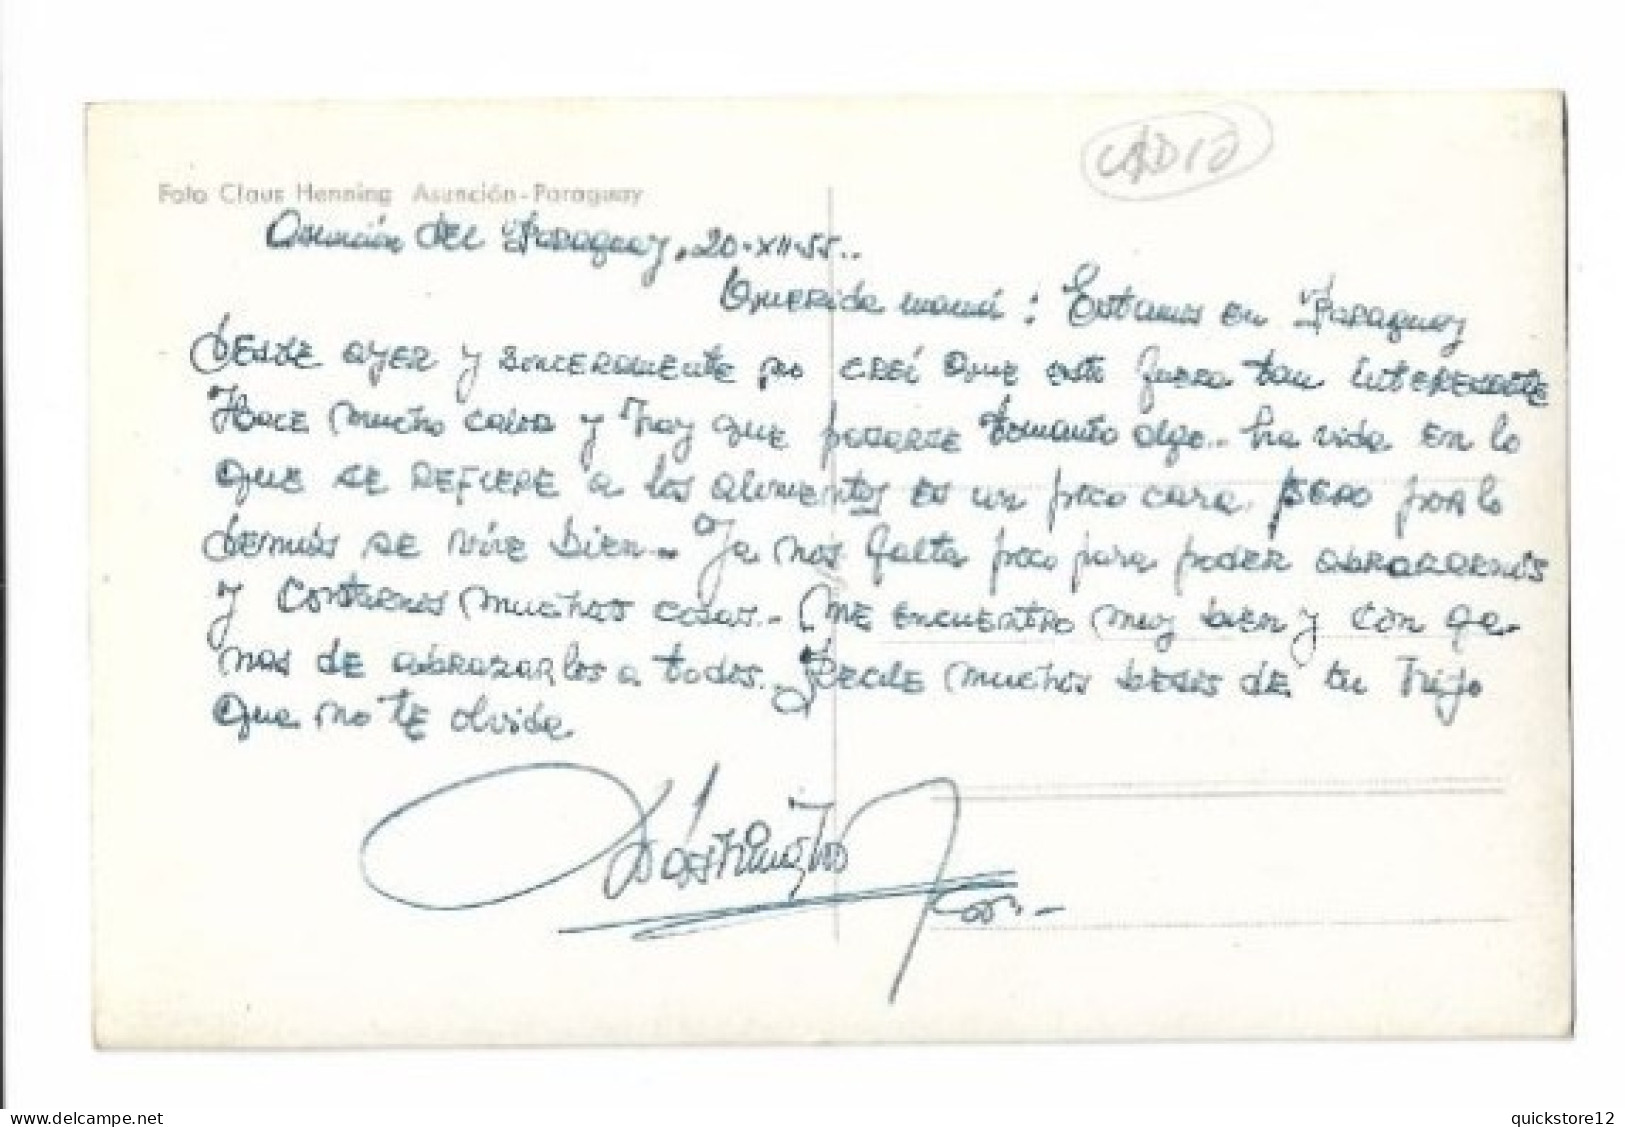 CAD12
Foto Claus Henning Asunción-Paraguay
Asunción del Paraguay, 20-XII-55..
Querida mamá: Estamos en Paraguay
desde ayer y sinceramente no creí que esto fuera tan interesante
Hace mucho calor y hay que pasarse tomando algo.. La vida en lo
que se refiere a los alimentos es un poco cara, pero por lo
demás se vive bien.. Ya nos falta poco para poder abrazarnos
y contarnos muchas cosas.- Me encuentro muy bien y con ga-
nas de abrazarlos a todos.. Recibe muchos besos de tu hijo
que no te olvida
delcampe.net
quickstore12